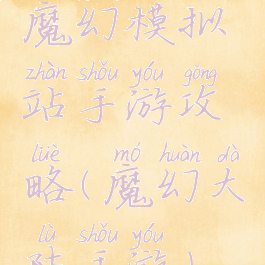 魔幻模拟
zhàn shǒu yóu gōng
站手游攻
lüè mó huàn dà
略(魔幻大
lù shǒu yóu
陆手游)